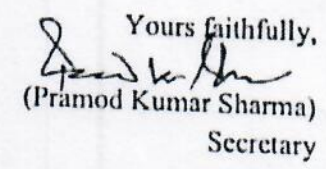 Yours faithfully,
(Pramod Kumar Sharma)
Secretary